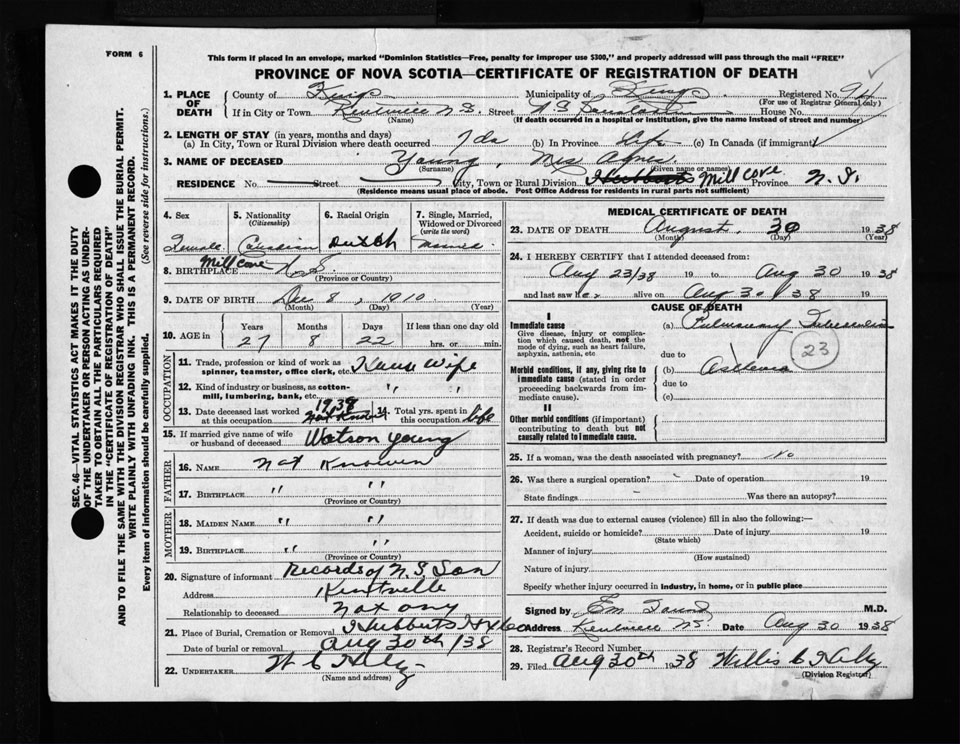 FORM 6
This form if placed in an envelope, marked "Dominion Statistics—Free, penalty for improper use $300," and properly addressed will pass through the mail "FREE"
PROVINCE OF NOVA SCOTIA—CERTIFICATE OF REGISTRATION OF DEATH
1. PLACE OF DEATH
County of Kings Municipality of Kings Registered No. 94
(For use of Registrar General only)
If in City or Town Kentville N S. Street N.S. Sanatorium House No.
(Name) (If death occurred in a hospital or institution, give the name instead of street and number)
2. LENGTH OF STAY (in years, months and days)
(a) In City, Town or Rural Division where death occurred 7 da (b) In Province Life (c) In Canada (if immigrant)
3. NAME OF DECEASED Young, Mrs Agnes.
(Surname) (Given name or names)
RESIDENCE No. Street City, Town or Rural Division Hubbards Mill cove Province N. S.
(Residence means usual place of abode. Post Office Address for residents in rural parts not sufficient)
4. Sex
Female
5. Nationality
(Citizenship)
Canadian
6. Racial Origin
Dutch
7. Single, Married, Widowed or Divorced
(write the word)
Married
Mill cove
8. BIRTHPLACE N. S.
(Province or Country)
9. DATE OF BIRTH Dec 8, 1910
(Month) (Day) (Year)
10. AGE in
Years Months Days If less than one day old
27 8 22 hrs. or min.
OCCUPATION
11. Trade, profession or kind of work as spinner, teamster, office clerk, etc. House Wife
12. Kind of industry or business, as cotton-mill, lumbering, bank, etc. " "
13. Date deceased last worked at this occupation 1938 14. Total yrs. spent in this occupation life
15. If married give name of wife or husband of deceased Watson Young
FATHER
16. NAME Not Knowen
17. BIRTHPLACE " "
(Province or Country)
MOTHER
18. MAIDEN NAME " "
19. BIRTHPLACE " "
(Province or Country)
20. Signature of informant Records of N. S San
Address Kentville
Relationship to deceased Not any
21. Place of Burial, Cremation or Removal Hubbards Hx Co
Date of burial or removal Aug 30th / 38
22. UNDERTAKER W C Hiley
(Name and address)
MEDICAL CERTIFICATE OF DEATH
23. DATE OF DEATH August, 30 1938
(Month) (Day) (Year)
24. I HEREBY CERTIFY that I attended deceased from:
Aug 23/38 19 to Aug 30 1938
and last saw her alive on Aug 30 / 38 19
CAUSE OF DEATH
I
Immediate cause
Give disease, injury or complication which caused death, not the mode of dying, such as heart failure, asphyxia, asthenia, etc
(a) Pulmonary Tuberculosis
23
due to
Morbid conditions, if any, giving rise to immediate cause (stated in order proceeding backwards from immediate cause).
(b) Asthenia
due to
(c)
II
Other morbid conditions (if important) contributing to death but not causally related to immediate cause.
25. If a woman, was the death associated with pregnancy? No
26. Was there a surgical operation? - Date of operation 19
State findings Was there an autopsy?
27. If death was due to external causes (violence) fill in also the following:—
Accident, suicide or homicide? Date of injury 19
(State which)
Manner of injury
(How sustained)
Nature of injury
Specify whether injury occurred in industry, in home, or in public place
Signed by M.D.
Address Kentville N S. Date Aug 30 1938
28. Registrar's Record Number
29. Filed Aug 30th 1938 Willis C Hiley
(Division Registrar)
SEC. 46—VITAL STATISTICS ACT MAKES IT THE DUTY
OF THE UNDERTAKER OR PERSON ACTING AS UNDER-
TAKER TO OBTAIN ALL THE PARTICULARS REQUIRED
IN THE "CERTIFICATE OF REGISTRATION OF DEATH"
AND TO FILE THE SAME WITH THE DIVISION REGISTRAR WHO SHALL ISSUE THE BURIAL PERMIT.
WRITE PLAINLY WITH UNFADING INK. THIS IS A PERMANENT RECORD.
Every item of information should be carefully supplied. (See reverse side for instructions.)